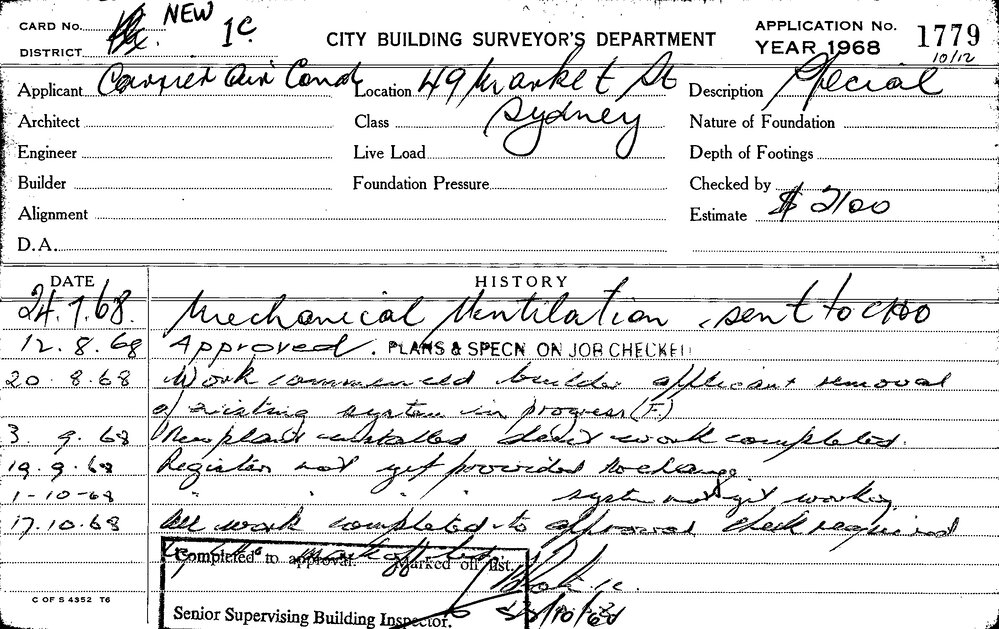 CARD No. NEW
DISTRICT 1C.
CITY BUILDING SURVEYOR'S DEPARTMENT
APPLICATION No. 1779
YEAR 1968 10/12
Applicant Carrier Air Cond Location 49 Market St Description Special
Architect Class Sydney Nature of Foundation
Engineer Live Load Depth of Footings
Builder Foundation Pressure Checked by
Alignment Estimate $ 2100
D.A.
DATE HISTORY
24.7.68. Mechanical Ventilation sent to
12.8.68 Approved. PLANS & SPECN ON JOB CHECKED
20.8.68 Work commenced builder applicant removal
of existing system in progress (F.)
3.9.68 New plant installed duct work completed.
19.9.68 Register not yet provided no change
1-10-68 " " " " system not yet working
17.10.68 All work completed to approval check required
Completed to approval. Marked off list.
1c.
23/10/68
C OF S 4352 T6
Senior Supervising Building Inspector.